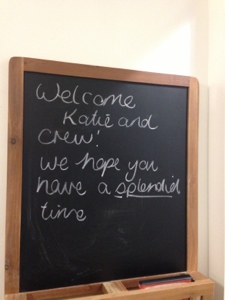 Welcome
Katie and
crew!
we hope you
have a splendid
time